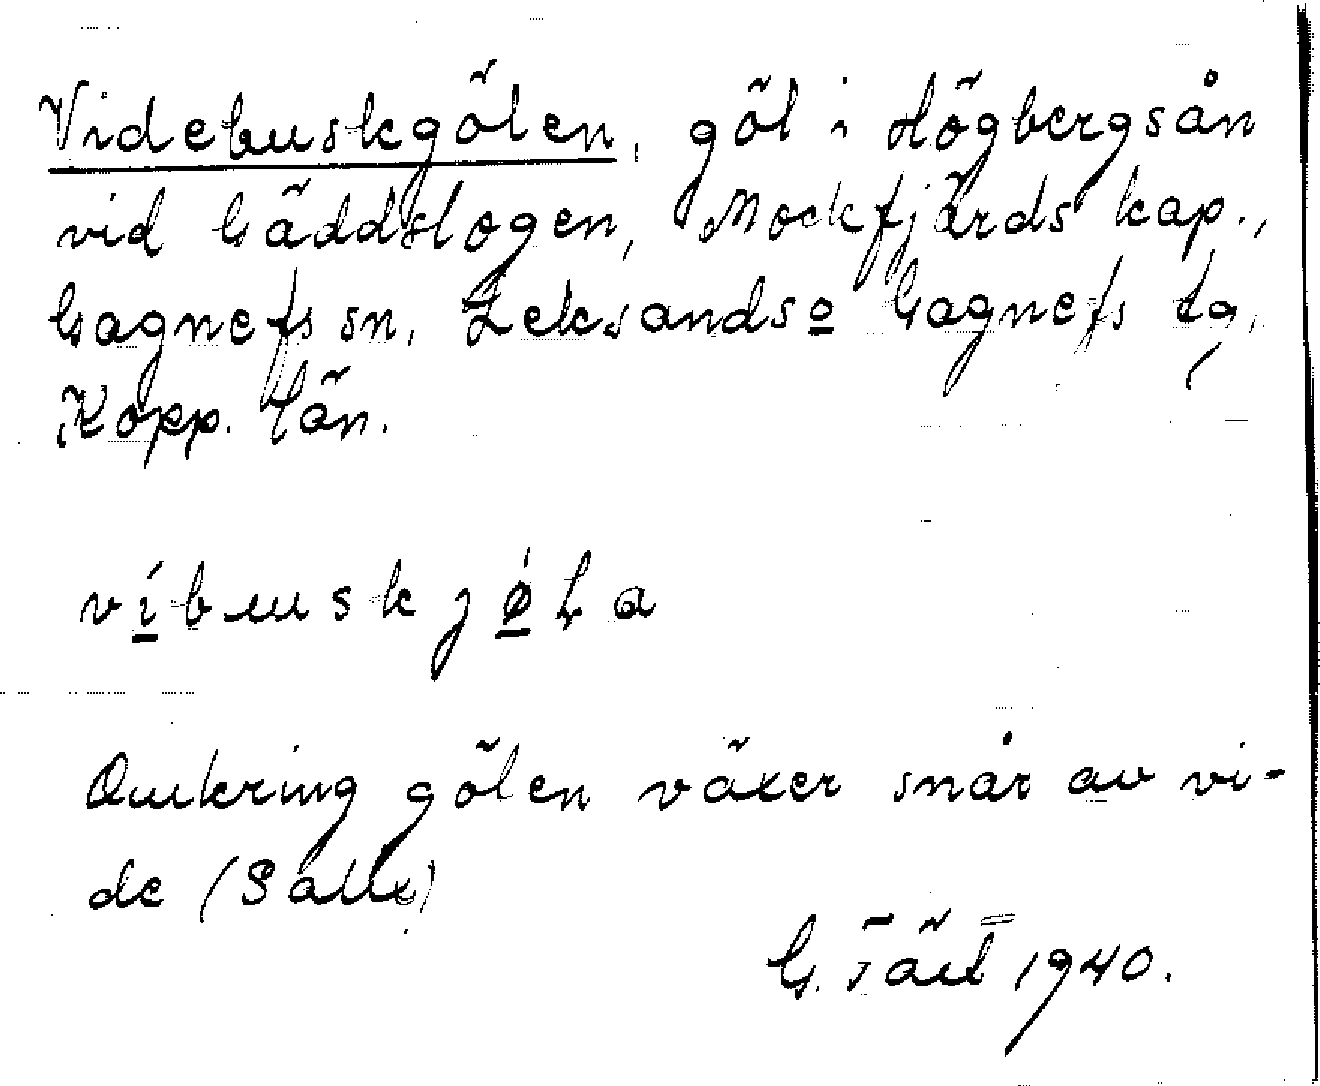 Videbuskgölen, göl i Högbergsån
vid Gäddslogen, Mockfjärds kap.,
Gagnefs sn, Leksands o Gagnefs tg,
Kopp. län.
víbuskjøLa
Omkring gölen växer snår av vi-
de (Salix)
G. 1940.